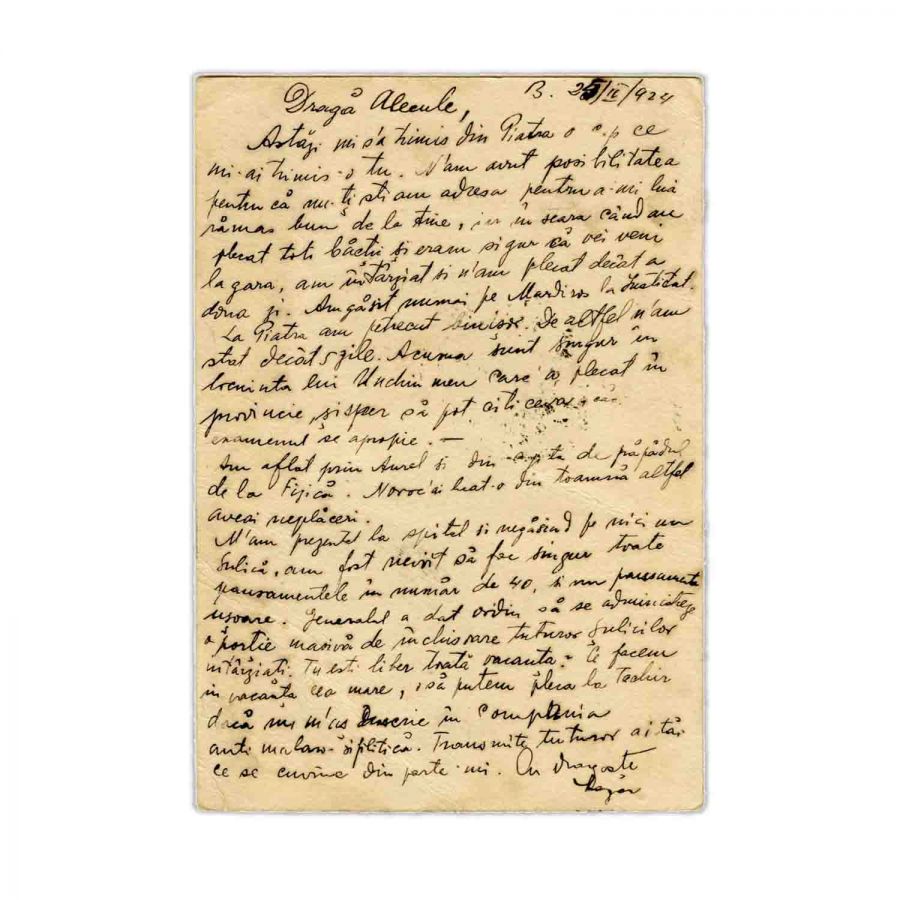 B. 25/IV/924
Dragă Alecule,
Astăzi mi s'a trimis din Piatra o c.p ce
mi-ai trimis-o tu. N'am avut posibilitatea
pentru că nu-ți știam adresa pentru a-mi lua
rămas bun de la tine, iar în seara când au
plecat toți băeții și eram sigur că vei veni
la gara, am întârziat si n'am plecat decât a
doua zi. Am găsit numai pe Mardiros la
La Piatra am petrecut binișor. De altfel n'am
stat decât 5 zile. Acuma sunt singur în
locuinta lui Unchiu meu care a plecat în
provincie, și sper să pot citi ceva căci
examenul se apropie. —
Am aflat prin Aurel si din de păpădul
de la Fizică. Noroc c'ai luat-o din toamnă altfel
aveai neplăceri.
M'am prezentat la spital si negăsind pe nici un
Sulică, am fost nevoit să fac singur toate
pansamentele în număr de 40, si nu pansamente
ușoare. Generalul a dat ordin să se administreze
o porție masivă de închisoare tuturor Sulicilor
intârziați. Tu ești liber toată vacanta? Ce facem
in vacanța cea mare, să putem pleca la Techir
dacă nu m'oi înscrie în Compania
anti malaro-sifilitică. Transmite tuturor ai tăi
ce se cuvine din parte-mi. Cu dragoste